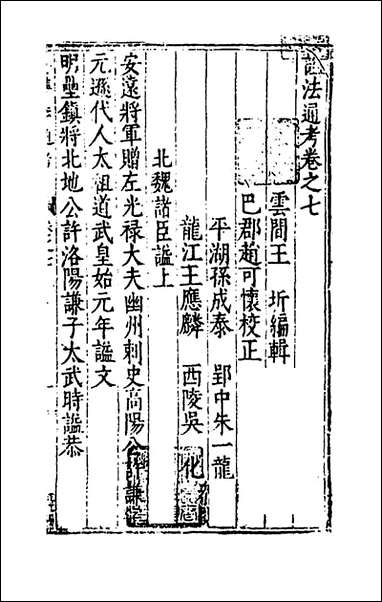 諡法通考卷之七
雲間王 圻編輯
巴郡趙可懷校正
平湖孫成泰 郢中朱一龍
龍江王應麟 西陵吳 化
北魏諸臣諡上
安遠將軍贈左光祿大夫幽州刺史高陽公許謙
元遜代人太祖道武皇始元年諡文
明壘鎮將北地公許洛陽謙子太武時諡恭